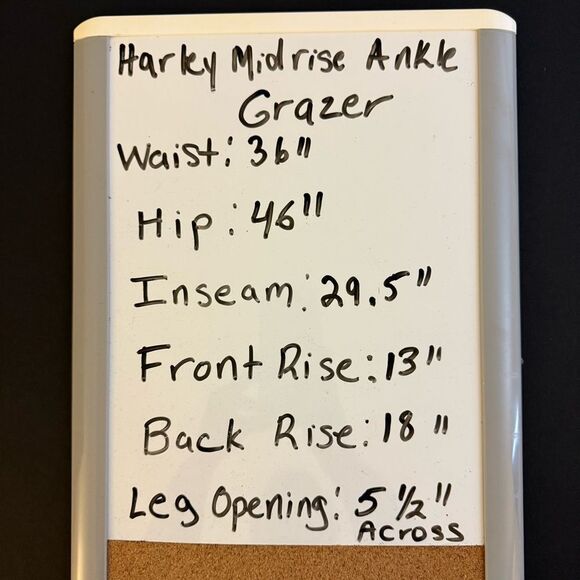 Harley Midrise Ankle
Grazer
Waist: 36"
Hip: 46"
Inseam: 29.5"
Front Rise: 13"
Back Rise: 18"
Leg Opening: 5 1/2"
Across